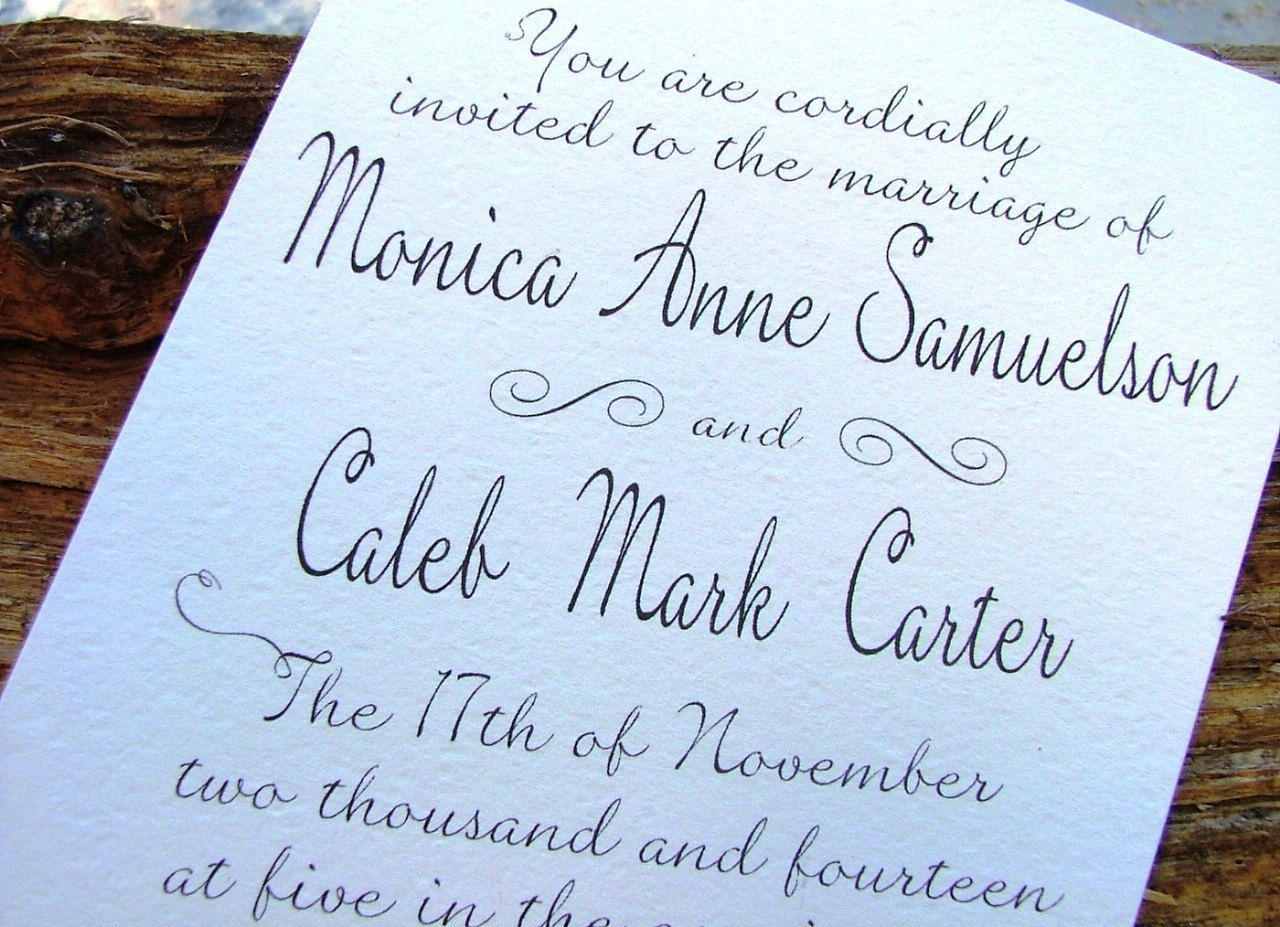 You are cordially
invited to the marriage of
Monica Anne Samuelson
and
Caleb Mark Carter
The 17th of November
two thousand and fourteen
at five in the